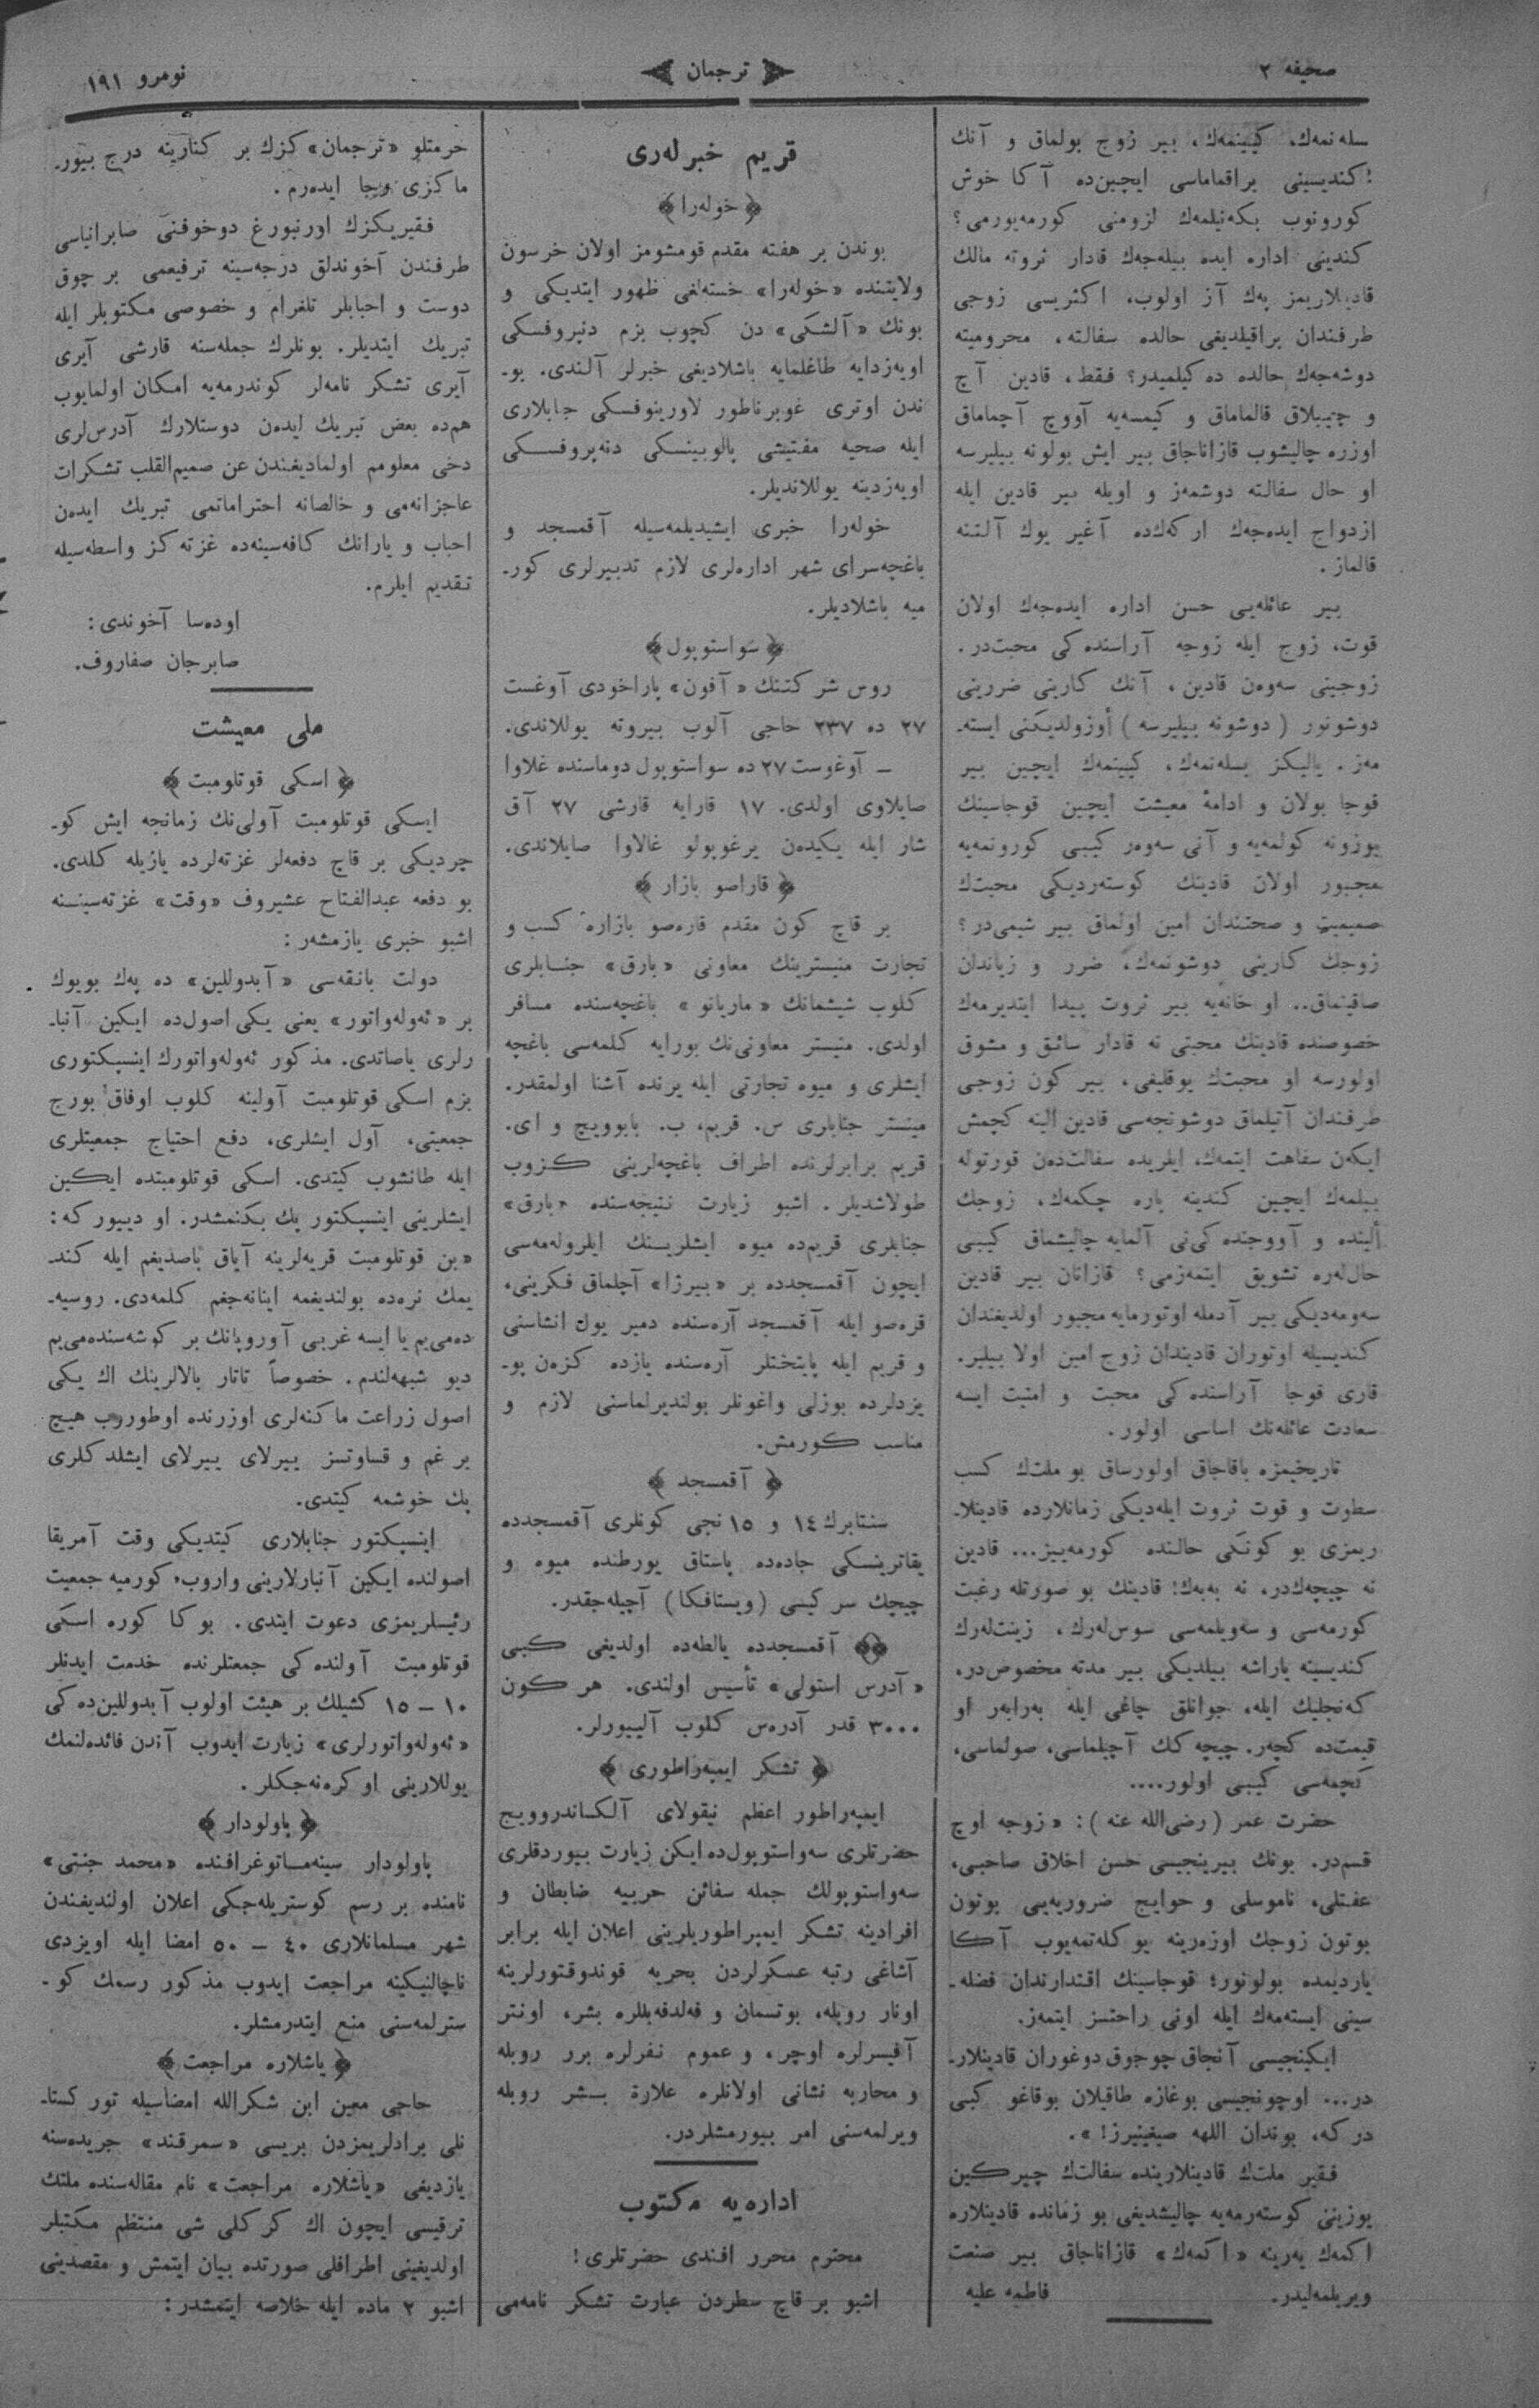 صحیفه ٢
ترجمان
نومرو ١٩١
سله‌نمه‌ك، كیینمه‌ك، بیر زوج بولماق و آنك
كندیسینی براقماماسی ایچین‌ده آكا خوش
كورونوب بكه‌نیلمه‌ك لزومنی كورمه‌یورمی؟
كندینی اداره ایده بیله‌جه‌ك قادار ثروته مالك
قادینلاریمز په‌ك آز اولوب، اكثریسی زوجی
طرفندان براقیلدیغی حالده سفالته، محرومیته
دوشه‌جه‌ك حالده ده‌كیلمیدر؟ فقط، قادین آچ
و چیپلاق قالماماق و كیمسه‌یه آووچ آچماماق
اوزره چالیشوب قازاناجاق بیر ایش بولونه بیلیرسه
او حال سفالته دوشمه‌ز و اویله بیر قادین ایله
ازدواج ایده‌جه‌ك اركه‌ك‌ده آغیر یوك آلتنه
قالماز.
بیر عائله‌یی حسن اداره ایده‌جه‌ك اولان
قوت، زوج ایله زوجه آراسنده‌كی محبت‌در.
زوجینی سه‌وه‌ن قادین، آنك كارینی ضررینی
دوشونور (دوشونه بیلیرسه) أوزولدیكنی ایسته‌ـ
مه‌ز. یالیكز بسله‌نمه‌ك، كیینمه‌ك ایچین بیر
قوجا بولان و ادامۀ معیشت ایچین قوجاسینك
یوزونه كولمه‌یه و آنی سه‌وه‌ر كیبی كورونمه‌یه
مجبور اولان قادینك كوسته‌ردیكی محبت‌ك
صمیمیت و صحتندان امین اولماق بیر شیمی‌در؟
زوجك كارینی دوشونمه‌ك، ضرر و زیاندان
صاقینماق.. او خانه‌یه بیر ثروت پیدا ایتدیرمه‌ك
خصوصنده قادینك محبتی نه قادار سائق و مشوق
اولورسه او محبت‌ك یوقلیغی، بیر كون زوجی
طرفندان آتیلماق دوشونجه‌سی قادین الینه كچمش
ایكه‌ن سفاهت ایتمه‌ك، ایلریده سفالت‌ده‌ن قورتوله
بیلمه‌ك ایچین كندینه پاره چكمه‌ك، زوجك
ألینده و آووجنده كی‌نی آلمایه چالیشماق كیبی
حال‌له‌ره تشویق ایتمه‌زمی؟ قازانان بیر قادین
سه‌ومه‌دیكی بیر آدمله اوتورمایه مجبور اولدیغندان
كندیسیله اوتوران قادیندان زوج امین اولا بیلیر.
قاری قوجا آراسنده‌كی محبت و امنیت ایسه
سعادت عائله‌نك اساسی اولور.
تاریخیمزه باقاجاق اولورساق بو ملت‌ك كسب
سطوت و قوت ثروت ایله‌دیكی زمانلارده قادینلاـ
ریمزی بو كونكی حالنده كورمه‌ییز... قادین
نه چیچه‌ك‌در، نه به‌به‌ك! قادینك بو صورتله رغبت
كورمه‌سی و سه‌ویلمه‌سی سوس‌له‌رك، زینت‌له‌رك
كندیسینه یاراشه بیلدیكی بیر مدته مخصوص‌در،
كه‌نجلیك ایله، جوانلق چاغی ایله به‌رابه‌ر او
قیمت‌ده كچه‌ر. چیچه‌كك آچیلماسی، صولماسی،
كچمه‌سی كیبی اولور....
حضرت عمر (رضی‌الله عنه): «زوجه اوچ
قسم‌در. بونك بیرینجیسی حسن اخلاق صاحبی،
عفتلی، ناموسلی و حوایج ضروریه‌یی بوتون
بوتون زوجك اوزه‌رینه یوكله‌تمه‌یوب آكا
یاردیمده بولونور؛ قوجاسینك اقتدارندان فضله‌ـ
سینی ایسته‌مه‌ك ایله اونی راحتسز ایتمه‌ز.
ایكینجیسی آنجاق چوجوق دوغوران قادینلارـ
در... اوچونجیسی بوغازه طاقیلان بوقاغو كبی
در كه، بوندان اللهه صیغینیرز!».
فقیر ملت‌ك قادینلارینده سفالت‌ك چیركین
یوزینی كوسته‌رمه‌یه چالیشدیغی بو زمانده قادینلاره
اكمه‌ك یه‌رینه «اكمه‌ك» قازاناجاق بیر صنعت
ویریلمه‌لیدر. فاطمه علیه
قریم خبرله‌ری
﴿خوله‌را﴾
بوندن بر هفته مقدم قومشومز اولان خرسون
ولایتنده «خوله‌را» خسته‌لغی ظهور ایتدیكی و
بونك «آلشكی» دن كچوب بزم دنپروفسكی
اویه‌زدایه طاغلمایه باشلادیغی خبرلر آلندی. بوـ
ندن اوتری غوبرناطور لاورینوفسكی جنابلاری
ایله صحیه مفتیشی پالوبینسكی دنه‌پروفسكی
اویه‌زدینه یوللاندیلر.
خوله‌را خبری ایشیدیلمه‌سیله آقمسجد و
باغچه‌سرای شهر اداره‌لری لازم تدبیرلری كورـ
میه باشلادیلر.
﴿سواستوپول﴾
روس شركتنك «آفون» پاراخودی آوغست
٢٧ ده ٢٣٧ حاجی آلوب بیروته یوللاندی.
ـ آوغوست ٢٧ ده سواستوپول دوماسنده غلاوا
صایلاوی اولدی. ١٧ قارایه قارشی ٢٧ آق
شار ایله یكیده‌ن یرغوپولو غالاوا صایلاندی.
﴿قاراصو بازار﴾
بر قاچ كون مقدم قاره‌صو بازاره كسب و
تجارت منیسترینك معاونی «بارق» جنابلری
كلوب شیشمانك «ماریانو» باغچه‌سنده مسافر
اولدی. منیستر معاونی‌نك بورایه كلمه‌سی باغچه
ایشلری و میوه تجارتی ایله یرنده آشنا اولمقدر.
مینستر جنابلری س. قریم، ب. بابوویچ و ای.
قریم برابرلرنده اطراف باغچه‌لرینی كزوب
طولاشدیلر. اشبو زیارت نتیجه‌سنده «بارق»
جنابلری قریم‌ده میوه ایشلریسنك ایلروله‌مه‌سی
ایچون آقمسجدده بر «بیرژا» آچلماق فكرینی،
قره‌صو ایله آقمسجد آره‌سنده دمیر یول انشاسنی
و قریم ایله پایتختلر آره‌سنده یازده كزه‌ن پوـ
یزدلرده بوزلی واغونلر بولندیرلماسنی لازم و
مناسب كورمش.
﴿آقمسجد﴾
سنتابرك ١٤ و ١٥ نجی كونلری آقمسجدده
یقاترینسكی جاده‌ده پاستاق یورطنده میوه و
چیچك سركیسی (ویستافكا) آچیله‌جقدر.
آقمسجدده یالطه‌ده اولدیغی كبی
«آدرس استولی» تأسیس اولندی. هر كون
٣٠٠٠ قدر آدره‌س كلوب آلیبورلر.
﴿تشكر ایمپه‌راطوری﴾
ایمپه‌راطور اعظم نیقولای آلكساندروویچ
حضرتلری سه‌واستوپول‌ده ایكن زیارت بیوردقلری
سه‌واستوپولك جمله سفائن حربیه ضابطان و
افرادینه تشكر ایمپراطوریلرینی اعلان ایله برابر
آشاغی رتبه عسكرلردن بحریه قوندوقتورلرینه
اونار روبله، بوتسمان و فه‌لدفه‌بللره بشر، اونتر
آفیسرلره اوچر، و عموم نفرلره برر روبله
و محاربه نشانی اولانلره علاوة بشر روبله
ویرلمه‌سنی امر بیورمشلردر.
اداره‌یه مكتوب
محترم محرر افندی حضرتلری!
اشبو بر قاچ سطردن عبارت تشكر نامه‌می
حرمتلو «ترجمان»كزك بر كنارینه درج بیورـ
ماكزی رجا ایده‌رم.
فقیریكزك اورنبورغ دوخوفنی صابرانیاسی
طرفندن آخوندلق درجه‌سینه ترفیعمی بر چوق
دوست و احبابلر تلغرام و خصوصی مكتوبلر ایله
تبریك ایتدیلر. بونلرك جمله‌سنه قارشی آیری
آیری تشكر نامه‌لر كوندرمه‌یه امكان اولمایوب
هم‌ده بعض تبریك ایده‌ن دوستلارك آدرس‌لری
دخی معلومم اولمادیغندن عن صمیم‌القلب تشكرات
عاجزانه‌می و خالصانه احتراماتمی تبریك ایده‌ن
احباب و یارانك كافه‌سینه‌ده غزته‌كز واسطه‌سیله
تقدیم ایلرم.
اوده‌سا آخوندی:
صابرجان صفاروف.
ملی معیشت
﴿اسكی قوتلومبت﴾
ایسكی قوتلومبت آولی‌نك زمانجه ایش كوـ
چردیكی بر قاچ دفعه‌لر غزته‌لرده یازیله كلدی.
بو دفعه عبدالفتاح عشیروف «وقت» غزته‌سینسنه
اشبو خبری یازمشه‌ر:
دولت بانقه‌سی «آبدوللین» ده په‌ك بویوك
بر «ئه‌وله‌واتور» یعنی یكی اصول‌ده ایكین آنباـ
رلری یاصاتدی. مذكور ئه‌وله‌واتورك اینسپكتوری
بزم اسكی قوتلومبت آولینه كلوب اوفاق بورج
جمعیتی، آول ایشلری، دفع احتیاج جمعیتلری
ایله طانشوب كیتدی. اسكی قوتلومبتده ایكین
ایشلرینی اینسپكتور پك بكنمشدر. او دییور كه:
«بن قوتلومبت قریه‌لرینه آیاق باصدیغم ایله كندـ
یمك نره‌ده بولندیغمه اینانه‌جغم كلمه‌دی. روسیه‌ـ
ده‌می‌یم یا ایسه غربی آوروپانك بر كوشه‌سنده‌می‌یم
دیو شبهه‌لندم. خصوصاً تاتار بالالرینك اك یكی
اصول زراعت ماكنه‌لری اوزرنده اوطوروب هیچ
بر غم و قساوتسز ییرلای ییرلای ایشلدكلری
پك خوشمه كیتدی.
اینسپكتور جنابلاری كیتدیكی وقت آمریقا
اصولنده ایكین آنبارلارینی واروب كورمیه جمعیت
رئیسلریمزی دعوت ایتدی. بوكا كوره اسكی
قوتلومبت آولنده‌كی جمعتلرنده خدمت ایدنلر
١٠ ـ ١٥ كشیلك بر هیئت اولوب آبدوللین‌ده كی
«ئه‌وله‌واتورلری» زیارت ایدوب آندن فائده‌لنمك
یوللارینی اوكره‌نه‌جكلر.
﴿پاولودار﴾
پاولودار سینه‌ماتوغرافنده «محمد جنتی»
نامنده بر رسم كوستریله‌جكی اعلان اولندیغندن
شهر مسلمانلاری ٤٠ ـ ٥٠ امضا ایله اویزدی
ناچالنیكینه مراجعت ایدوب مذكور رسمك كوـ
سترلمه‌سنی منع ایتدرمشلر.
﴿یاشلاره مراجعت﴾
حاجی معین ابن شكرالله امضاسیله توركستاـ
نلی برادلریمزدن بریسی «سمرقند» جریده‌سنه
یازدیغی «یاشلاره مراجعت» نام مقاله‌سنده ملتك
ترقیسی ایچون اك كركلی شی منتظم مكتبلر
اولدیغینی اطرافلی صورتده بیان ایتمش و مقصدینی
اشبو ٢ ماده ایله خلاصه ایتمشدر: